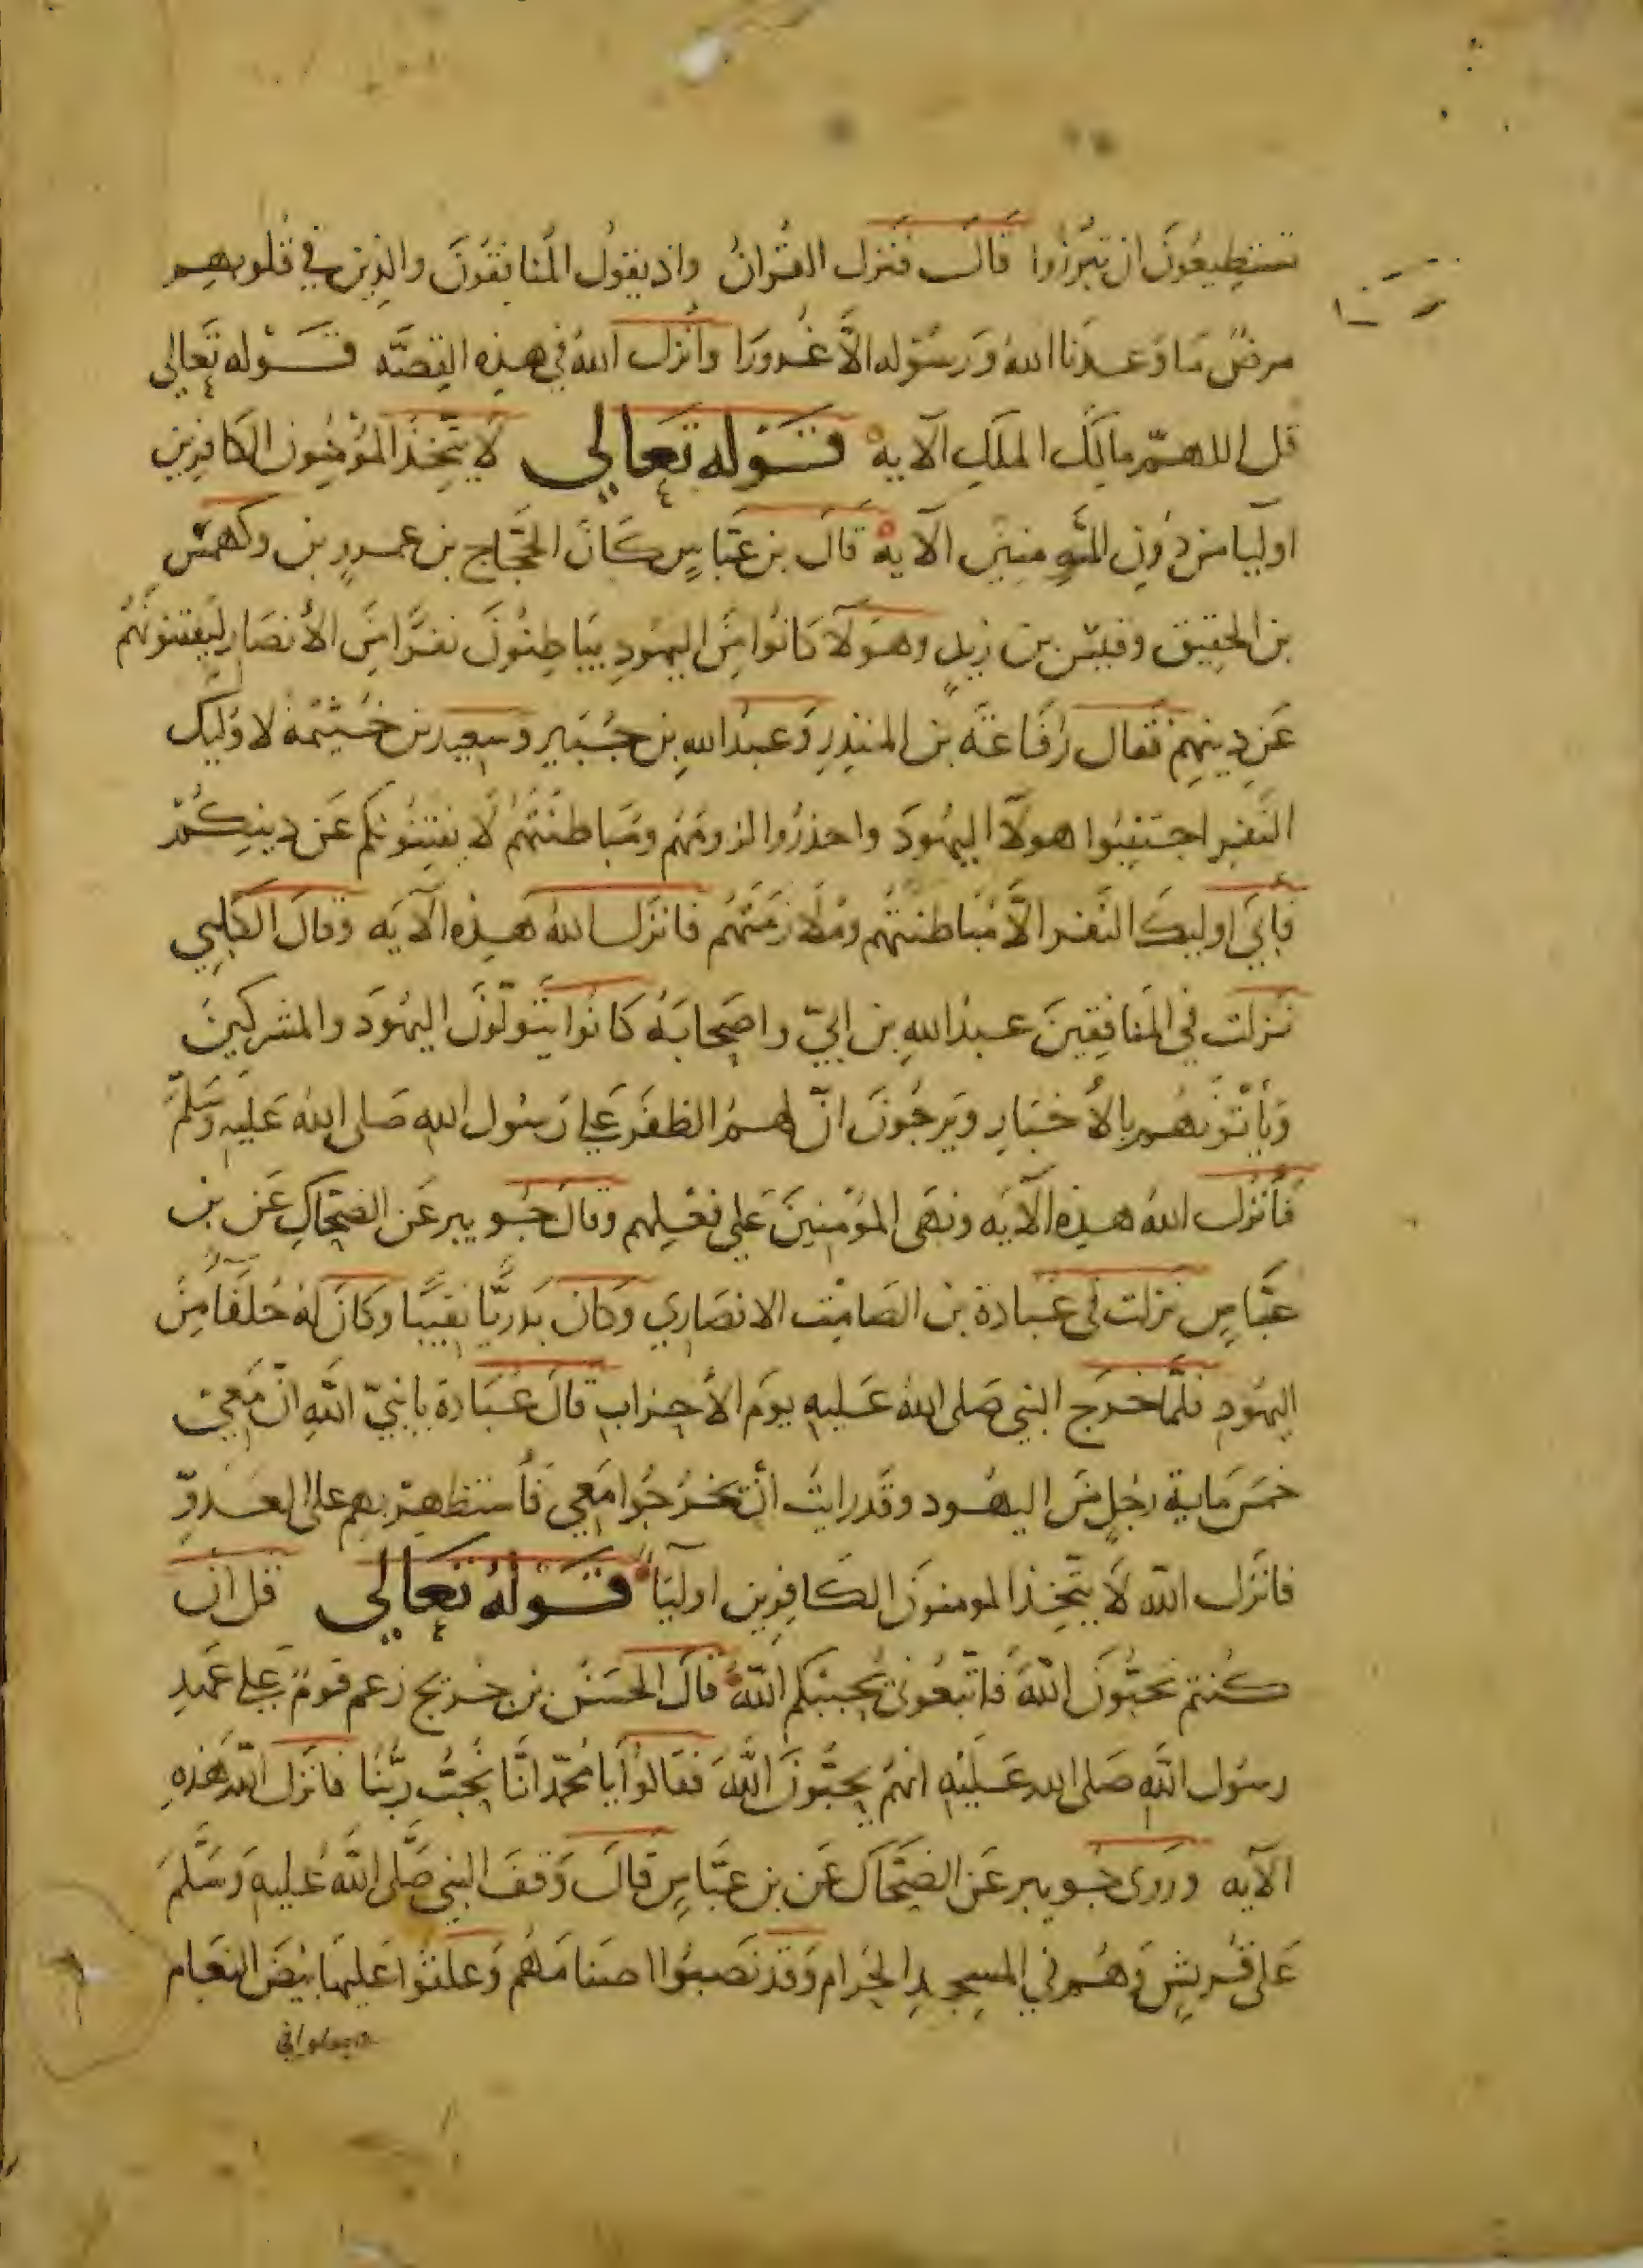 تستطيعُونَ ان تبرُزُوا قالَ فنزل القُرانُ واذ يقولُ المُنافقُونَ والذِين في قلوبهم
مرضٌ مَا وَعدنا اللهُ وَرسُوله الاَّ غُرورًا وأنزل اللهُ في هذِه القِصَّه قَوْله تَعَالي
قل اللهمّ مالِكَ الملكِ الآيه قَوْله تَعَالي لَا يتّخِذ المُؤمِنُون الكافِرِين
اوليا من دُونِ المُومِنِينَ الآيه قَالَ بن عَبّاسٍ كَانَ الحَجّاج بن عمرٍو بن وكهمَسْ
بن الحقِيق وقيسْ بن زيدٍ وهَولآ كانُوا مِنَ اليهُودِ يبَاطِنُونَ نفرًا مِنَ الأنصَارِ ليَفتنونَهُم
عَن دِينهِمْ فقال رفَاعَة بن المنذِرِ وَعبدُ اللهِ بن جُبَيرٍ وسَعِيد بن خَيثمْة لاوليك
النّفرِ اجتنِبُوا هولآ اليهُودَ واحذرُوا لزومَهُم ومُبَاطنَتهُم لَا يفتِنُونكم عَن دِينِكُمْ
فأبَي اوليكَ النّفر الاَّ مُبَاطنتهُم ومُلَازمَتهُم فانزَل اللهُ هَذِه الآيَه وقالَ الكَلبِي
نَزلت في المُنافِقِينَ عبدُ اللهِ بن ابيّ واصحابَهُ كانُوا يتَولّوْنَ اليهُودَ والمشركينَ
وَيأتُونهُم بالأخبَارِ وَيرجُونَ انّ لهمُ الظفَر عَلي رَسُول اللهِ صَلى اللهُ عَليهِ وَسَلّمَ
فأنزَل اللهُ هذِه الآيَه ونهَى المُؤمِنِينَ عَلي فعْلِهم وقالَ جُوَيبر عَن الضحّاكِ عَن بن
عبّاسٍ نزلت في عُبادة بن الصَامِت الانصَاري وَكان بَدريًّا نقيبًا وَكانَ لهُ حُلَفَا مِنَ
اليهُودِ فلمّا خرَج النبي صَلى اللهُ عَليهِ يومَ الأحزابِ قالَ عُبَادة يا نبيّ اللهِ انّ مَعِي
خمسَ مايةِ رجُلٍ مِنَ اليهُود وقَد رايتُ أنْ يخرُجُوا مَعِي فأستظهِرُ بهِم على العَدوِّ
فانزَل اللهُ لَا يتّخِذ المومنونَ الكافِرِين اوليَا قَوْلهُ تَعَالي قل ان
كُنتم تحبّونَ اللهَ فاتّبعُوني يُحببْكم اللهُ قالَ الحسَنُ بن جُريج زعم قومٌ عَلي عَهدِ
رسُول اللهِ صَلى الله عَليْهِ انهُم يحبُّونَ اللهَ فقالُوا يا محمّد انَّا نُحبُّ رَبّنَا فانزَل اللهُ هَذِهِ
الآيه ورَوى جُويبر عَن الضحَّاك عَن بن عبّاسٍ قالَ وَقفَ النبي صَلّى اللهُ عَليهِ وَسَلّمَ
عَلى قُريشٍ وَهُم في المسجِدِ الحَرامِ وَقَد نَصبُوا اصنامَهُم وَعلّقُوا عَليهَا بيْضَ النعَام
وجعلوا في